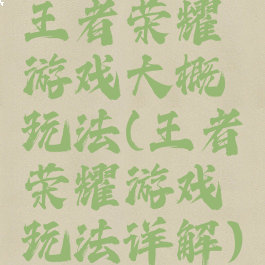 王者荣耀
游戏大概
玩法(王者
荣耀游戏
玩法详解)